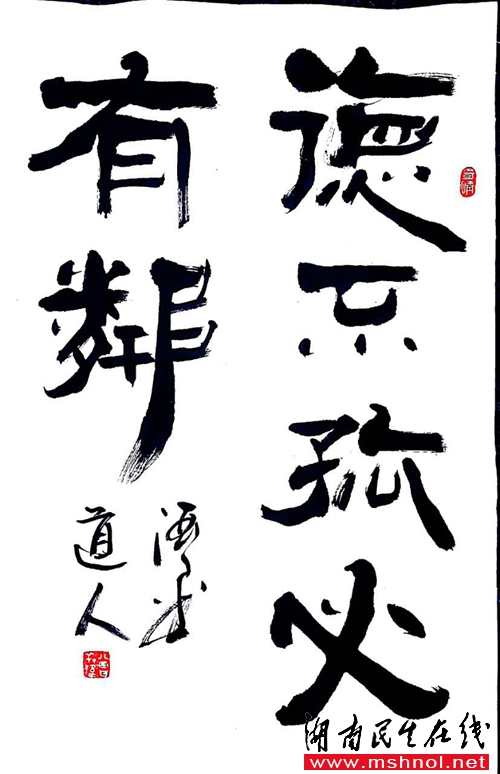 德不孤必
有鄰
道人
湖南民生在线
www.mshnol.net